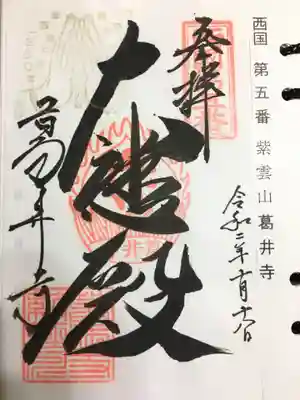 西国 第五番 紫雲山 葛井寺
令和二年十月
奉拝
大悲殿
葛井寺